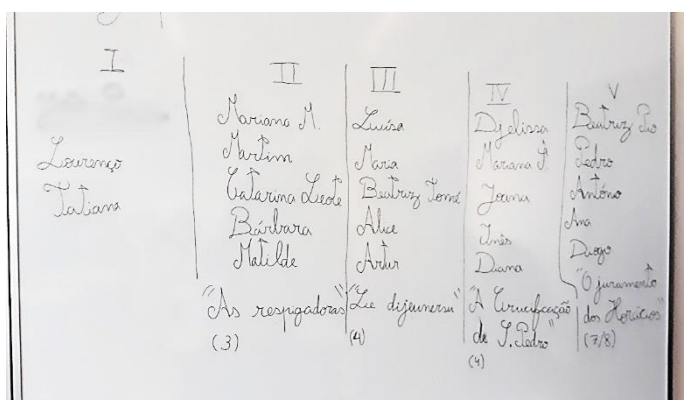 I
Lourenço
Tatiana
II
Mariana M.
Martim
Catarina Leote
Bárbara
Matilde
"As respigadoras"
(3)
III
Luísa
Maria
Beatriz Tomé
Alice
Artur
"Le dijeunersu"
(4)
IV
Djelissa
Mariana P.
Joana
Inês
Diana
"A Crucificação
de S. Pedro"
(4)
V
Beatriz Pio
Pedro
António
Ana
Diogo
"O juramento
dos Horácios"
(7/8)